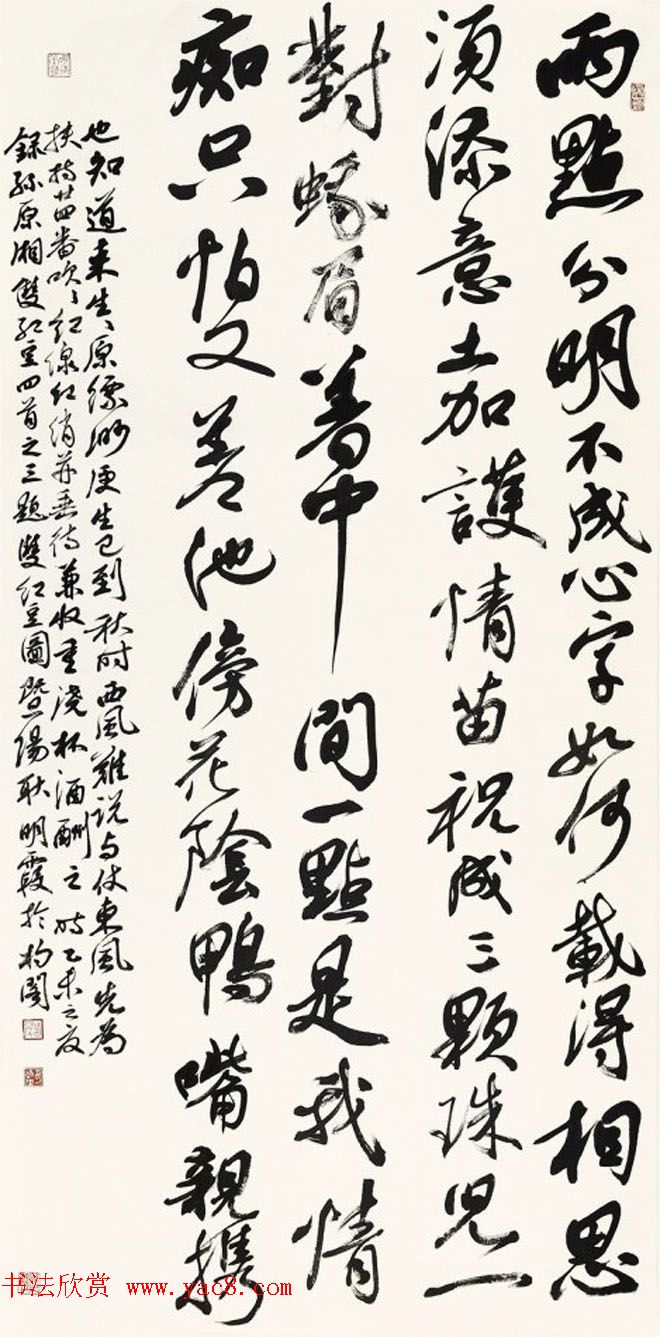 兩點分明不成心字如何載得相思
須添意土加護情苗祝成三顆珠兒一
對蛾眉著中間一點是我情
痴只怕又差池傍花陰鴨嘴親攜
也知道來生原縹緲便生已到秋時西風難說與仗東風先為
扶持廿四番吹吹紅綠紅綃并垂待兼收重澆杯酒酬之時乙未之夏
錄孫原湘雙紅豆四首之三題雙紅豆圖暨陽耿明霞於
书法欣赏 www.yac8.com